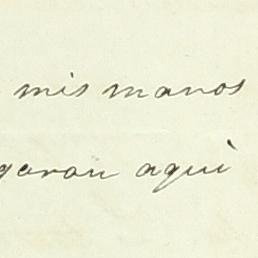 mis manos
garon aquì